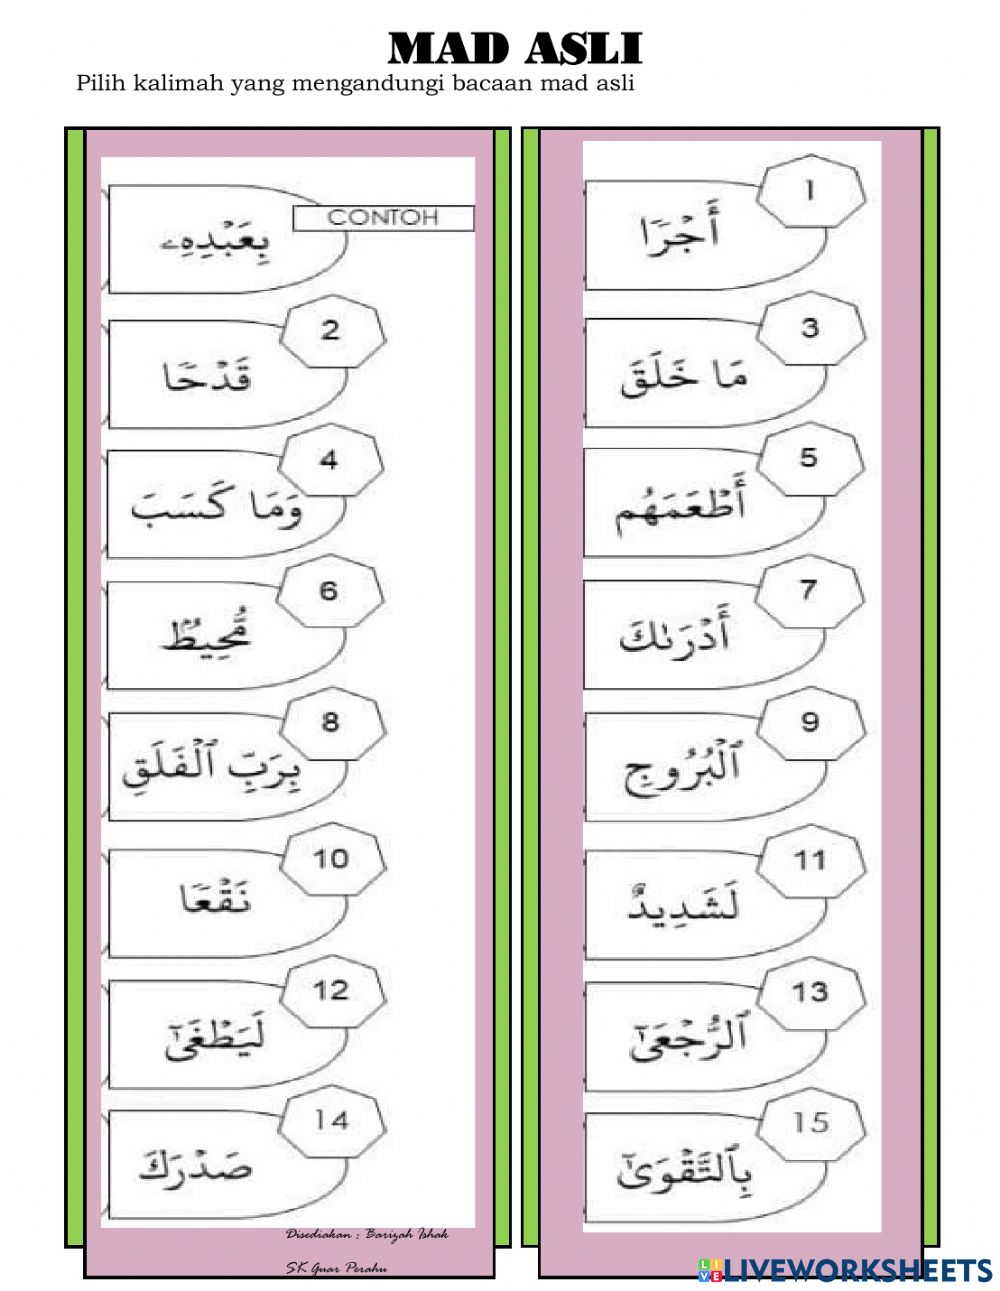 MAD ASLI
Pilih kalimah yang mengandungi bacaan mad asli
CONTOH
بِعَبْدِهِۦ
1
أَجْرًا
2
قَدْحًا
3
مَا خَلَقَ
4
وَمَا كَسَبَ
5
أَطْعَمَهُم
6
مُّحِيطٌۢ
7
أَدْرَىٰكَ
8
بِرَبِّ ٱلْفَلَقِ
9
ٱلْبُرُوجِ
10
نَقْعًا
11
لَشَدِيدٌ
12
لَيَطْغَىٰٓ
13
ٱلرُّجْعَىٰٓ
14
صَدْرَكَ
15
بِٱلتَّقْوَىٰٓ
Disediakan : Bariyah Ishak
SK Guar Perahu
LIVEWORKSHEETS